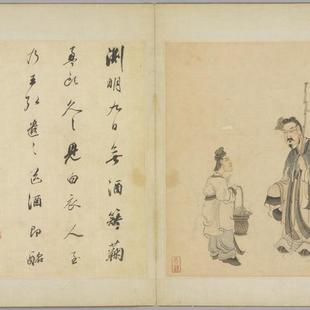 淵明九日無酒籬菊
盈把久之見白衣人至
乃王弘遣送酒即